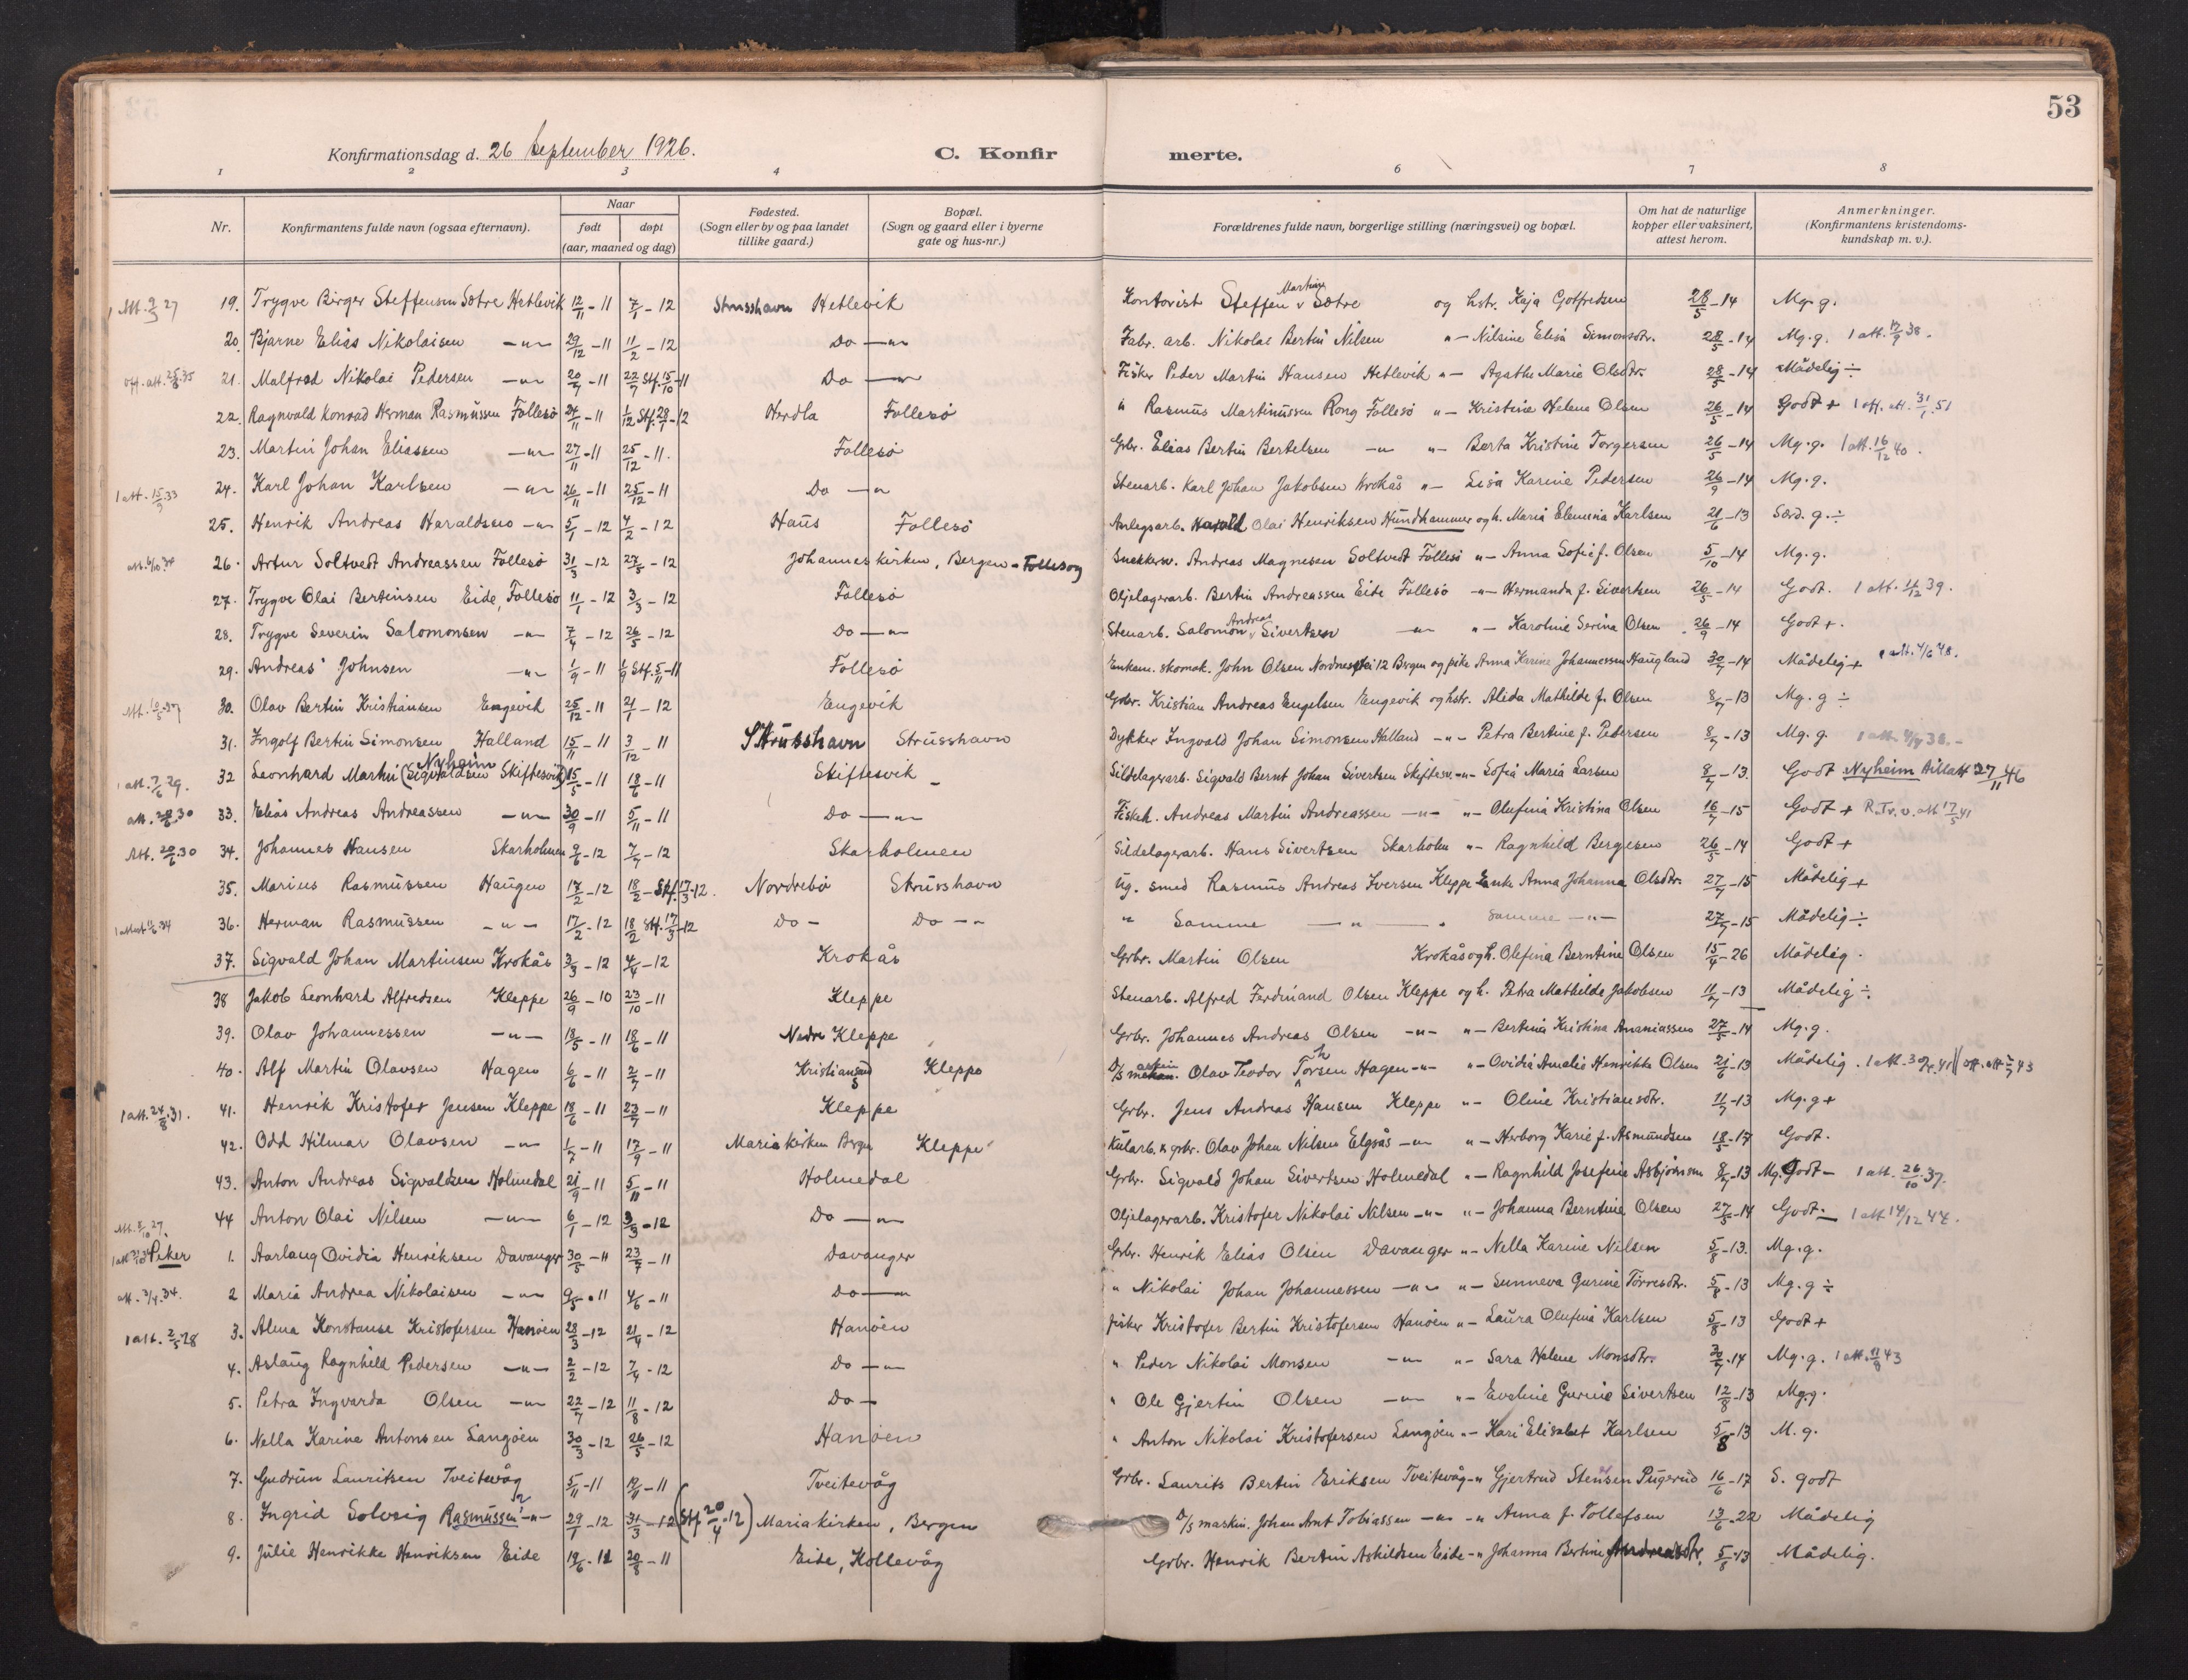 53
Konfirmationsdag d. 26 September 1926. C. Konfirmerte.
1 2 3 4 6 7 8
Nr. Konfirmantens fulde navn (ogsaa efternavn). Naar født døpt (aar, maaned og dag) Fødested. (Sogn eller by og paa landet tillike gaard.) Bopæl. (Sogn og gaard eller i byerne gate og hus-nr.) Forældrenes fulde navn, borgerlige stilling (næringsvei) og bopæl. Om hat de naturlige kopper eller vaksinert, attest herom. Anmerkninger. (Konfirmantens kristendoms-kundskap m. v.).
19. Trygve Birger Steffensen Sætre Hetlevik 12/11-11 7/1-12 Strusshavn Hetlevik Kontorist Steffen Martin Sætre og hstr. Kaja Gotfredsen 28/5-14 Mg. g.
20. Bjarne Elias Nikolaisen -"- 29/12-11 11/2-12 Do -"- Fabr. arb. Nikolai Bertin Nilsen "- Nilsine Elisa Simonsdtr. 28/5-14 Mg. g. 1 att. 17/9 38.
off. att. 25/8 35 21. Malfred Nikolai Pedersen -"- 20/7-11 22/7 Stf. 15/10-11 Do -"- Fisker Peder Martin Hansen Hetlevik "- Agathe Marie Olsdtr. 28/5-14 Mådelig ÷
22. Ragnvald Konrad Herman Rasmussen Follesö 24/11-11 1/12 Stf. 28/1-12 Herdla Follesö " Rasmus Martinussen Rong Follesö "- Kristine Helene Olsen 26/5-14 Godt + 1 off. att. 31/1 51
23. Martin Johan Eliassen -"- 27/11-11 25/12-11. Follesö Grbr. Elias Bertin Bertelsen -"- "- Berta Kristine Torgersen 26/5-14 Mg. g. 1 att. 16/12 40.
1 att. 15/9 33 24. Karl Johan Karlsen -"- 26/11-11 25/12-11 Do -"- Stenarb. Karl Johan Jakobsen Krokås "- Lisa Karine Pedersen 26/9-14 Mg. g.
25. Henrik Andreas Haraldsen -"- 5/1-12 4/2-12 Haus Follesö Anlegsarb. Harald Olai Henriksen Hundhammer og h. Maria Elenusia Karlsen 21/6-13 Særd. g. ÷
att. 6/10 34 26. Artur Soltvedt Andreassen Follesö 31/3-12 27/5-12 Johanneskirken, Bergen - Follesöy Snekkersv. Andreas Magnesen Soltvedt Follesö "- Anna Sofie f. Olsen 5/10-14 Mg. g.
27. Trygve Olai Bertinsen Eide, Follesö 11/1-12 3/3-12 Follesö Oljelagerarb. Bertin Andreassen Eide Follesö -"- Hermanda f. Sivertsen 26/5-14 Godt. 1 att. 11/12 39.
28. Trygve Severin Salomonsen -"- 7/4-12 26/5-12 Do -"- Stenarb. Salomon Andreas Sivertsen -"- "- Karoline Serina Olsen 26/9-14 Godt +.
29. Andreas Johnsen -"- 1/9-11 1/9 Stf. 5/11-11 Follesö Enkem. skomak. John Olsen Nordnesvei 12 Bergen og pike Anna Karine Johannessen Haugland 30/7-14 Mådelig + 1 att. 4/6 48.
30. Olav Bertin Kristiansen Engevik 25/12-11 21/1-12 Engevik Grbr. Kristian Andreas Engelsen Engevik og hstr. Alida Mathilde f. Olsen 8/7-13 Mg. g ÷
31. Ingolf Bertin Simonsen Halland 15/11-11 3/12-11 Strusshavn Strusshavn Dykker Ingvald Johan Simonsen Halland -"- Petra Bertine f. Pedersen 8/7-13 Mg. g.
1 att. 7/6 29. 32 Leonhard Martin (Sigvaldsen Skiftesvik) Nyheim 15/5-11 18/6-11 Skiftesvik - Sildelagerarb. Sigvald Bernt Johan Sivertsen Skiftesv. -"- Sofia Maria Larsen 8/7-13. Godt Nyheim tillatt 27/11 46
att. 28/8 30 33. Elias Andreas Andreassen -"- 30/9-11 5/11-11 Do -"- Fiskeh. Andreas Martin Andreassen -"- "- Olufina Kristina Olsen 16/7-15 Godt + R.Tv. v. att 17/5 41
Att. 20/6 30 34. Johannes Hansen Skarholmen 9/6-12 7/7-12 Skarholmen Sildelagerarb. Hans Sivertsen Skarholm "- Ragnhild Bergesen 26/5-14 Godt +
35. Marius Rasmussen Haugen 17/2-12 18/2-Stf. 17/3-12. Nordrebö Strusshavn Ug. smed Rasmus Andreas Iversen Kleppe Enke Anna Johanna Olsdtr. 27/7-15 Mådelig +
36. Herman Rasmussen -"- 17/2-12 18/2 Stf. 17/3-12 Do - Do -"- " Samme -"- " samme -"- 27/7-15 Mådelig ÷
37. Sigvald Johan Martinsen Krokås 3/3-12 4/4-12 Krokås Grbr. Martin Olsen Krokås og h. Olefina Berntine Olsen 15/4-26 Mådelig.
38 Jakob Leonhard Alfredsen Kleppe 26/9-10 23/10-11 Kleppe Stenarb. Alfred Ferdinand Olsen Kleppe og h. Petra Mathilde Jakobsen 11/7-13 Mådelig ÷.
39. Olav Johannessen -"- 18/5-11 18/6-11 Nedre Kleppe Grbr. Johannes Andreas Olsen -"- "- Bertina Kristina Ananiassen 27/5-14 Mg. g.
40. Alf Martin Olavsen Hagen 6/6-11 2/7-11 Kristiansand S Kleppe D/S maskin. Olav Teodor Thorsen Hagen -"- "- Ovidia Amalie Henrikke Olsen 21/6-13 Mådelig.
1 att. 24/8 31. 41. Henrik Kristofer Jensen Kleppe 18/6-11 23/7-11 Kleppe Grbr. Jens Andreas Hansen Kleppe "- Oline Kristiansdtr. 11/7-13 Mg. g +
42. Odd Hilmar Olavsen -"- 1/7-11 17/9-11 Mariakirken Bergen Kleppe Kularb. & grbr. Olav Johan Nilsen Elgsås -"- "- Herborg Karie f. Asmundsen 18/5-17 Godt.
43. Anton Andreas Sigvaldsen Holmedal 21/9-11 5/11-11 Holmedal Grbr. Sigvald Johan Sivertsen Holmedal "- Ragnhild Josefine Asbjörnsen 8/7-13 Mg. Godt - 1 att. 26/10 37.
44 Anton Olai Nilsen -"- 6/1-12 3/3-12 Do -"- Oljelagerarb. Kristofer Nikolai Nilsen -"- "- Johanna Berntine Olsen 27/5-14 Godt. - 1 att 14/12 44.
Piker 1. Aarlaug Ovidia Henriksen Davanger 30/5-11 23/7-11 Davanger Grbr. Henrik Elias Olsen Davanger "- Nella Karine Nilsen 5/8-13. Mg. g.
att. 3/4 34. 2 Maria Andrea Nikolaisen -"- 9/5-11 4/6-11 Do -"- " Nikolai Johan Johannessen -"- "- Sunneva Gurine Torresdtr. 5/8-13 Mg. g ÷
1 att. 2/5 28 3. Alma Konstanse Kristofersen Hanöen 28/3-12 21/4-12 Hanöen fisker Kristofer Bertin Kristofersen Hanöen "- Laura Olufina Karlsen 5/8-13 Godt +
4. Aslaug Ragnhild Pedersen -"- 2/2-12 7/4-12 Do -"- " Peder Nikolai Monsen -"- "- Sara Helene Monsdtr. 30/7-14 Mg. g. 1 att. 11/8 43
5. Petra Ingvarda Olsen -"- 22/7-12 11/8-12 Do - " Ole Gjertin Olsen -"- "- Eveline Gurine Sivertsen 12/8-13 Mg. g.
6. Nella Karine Antonsen Langöen 30/3-12 26/5-12 Hanöen " Anton Nikolai Kristofersen Langöen "- Kari Elisabet Karlsen 5/8-13 M. g.
7. Gudrun Lauritsen Tveitevåg 5/11-11 12/11-11 Tveitevåg Grbr. Laurits Bertin Eriksen Tveitevåg -" Gjertrud Stensen Pugerud 16/6-17 S. godt
8. Ingrid Solveig Rasmussen -"- 29/1-12 31/3-12 (Stf 20/4-12) Mariakirken, Bergen D/S maskin. Johan Arnt Tobiassen -"- -" Anna f. Tollefsen 13/6-22 Mådelig
9. Julie Henrikke Henriksen Eide 18/6-11 20/8-11 Eide, Kollevåg Grbr. Henrik Bertin Askildsen Eide -" Johanna Bertine Andreasdtr. 5/8-13 Mådelig.